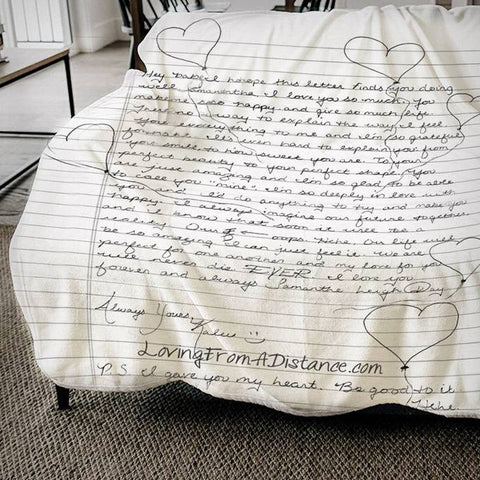 Hey babe, I hope this letter finds you doing
well Samantha. I love you so much. You
make me so happy and give so much life.
There is no way to explain the way I feel.
You everything to me and I'm so grateful
I found it. It's even hard to explain you from
your smile to how sweet you are. To your
perfect beauty to your perfect shape. You
are just amazing and I'm so glad to be able
to call you "mine". I'm so deeply in love with
you and I'd do anything to try and make you
happy. I always imagine our future together.
and I know that soon it will be a
reality. Our oops. hehe. Our life will
be so amazing I can just feel it. We are
perfect for one another and my love for you
will never die EVER. I love you
forever and always Samantha Leigh Day
Always Yours,
LovingFromADistance.com
P.S. I gave you my heart. Be good to it
Hehe.